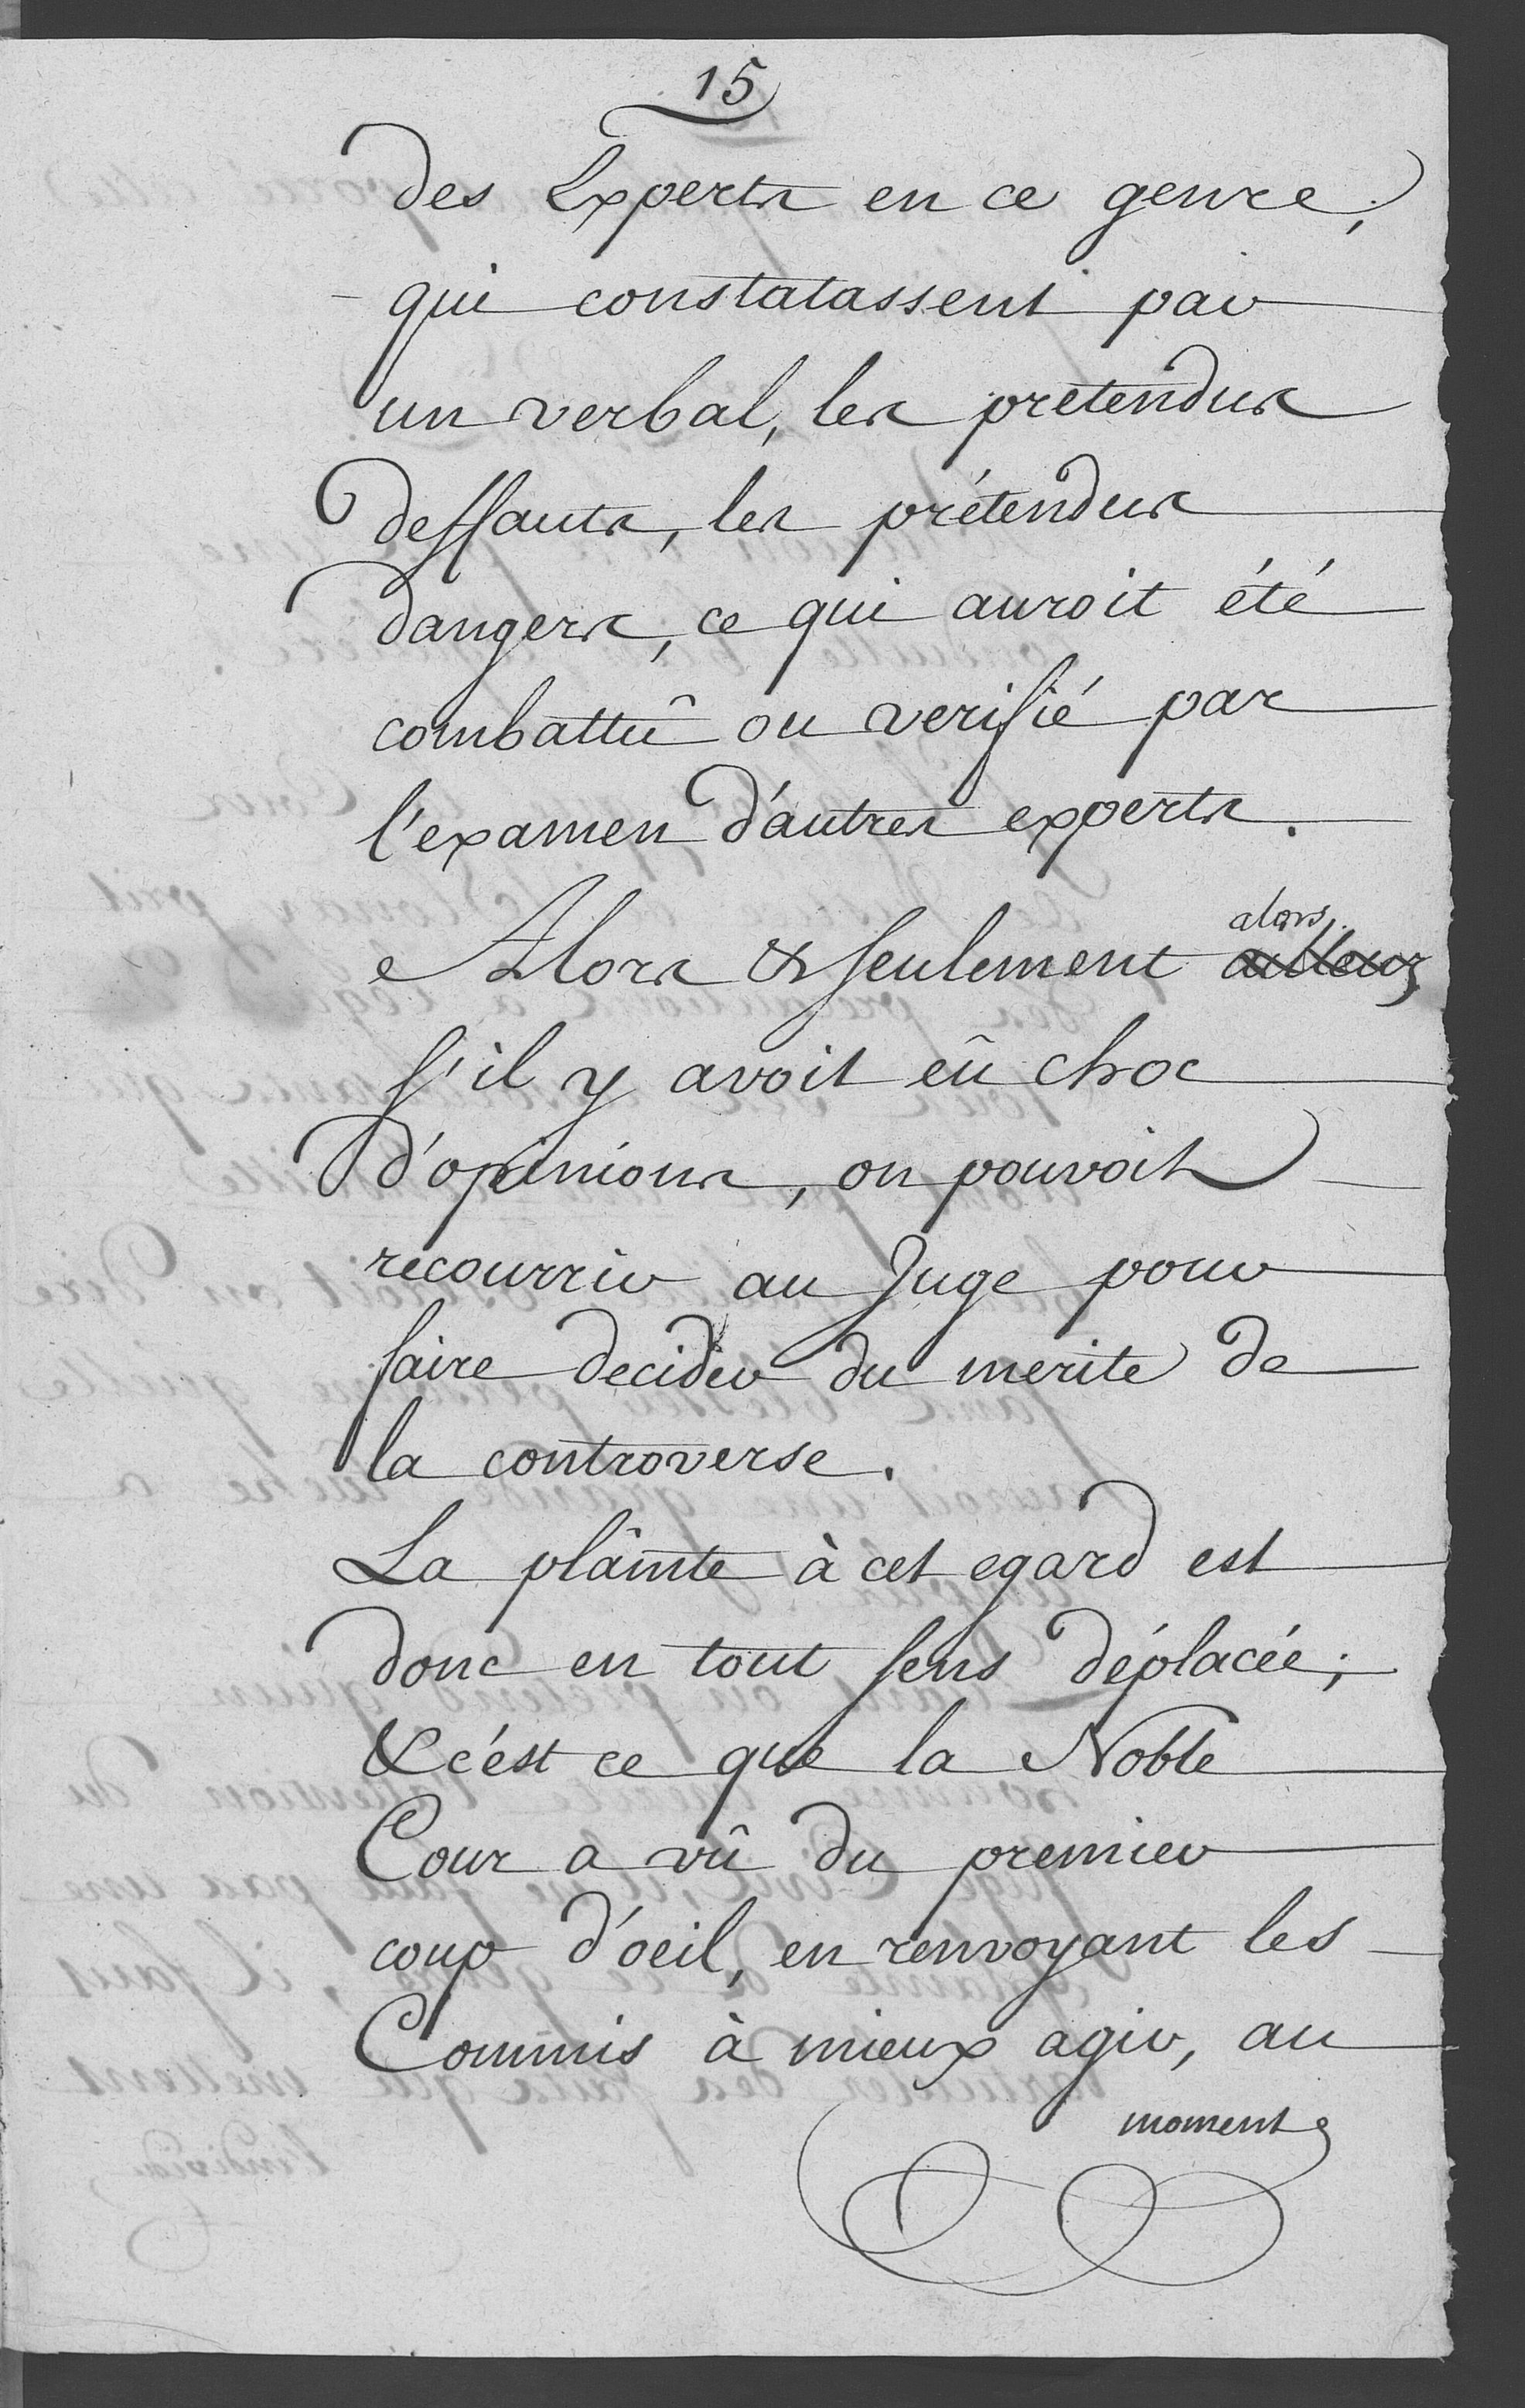 15
des Experts en ce genre,
qui constatassent par
un verbal, les prétendus
deffauts, les prétendus
dangers, ce qui auroit été
combattû ou verifié par
l'examen d'autres experts.
alors
Alors & seulement ailleurs
s'il y avoit eû choc
d'opinions, on pouvoit
recourrir au Juge pour
faire decider du merite de
la controverse.
La plâinte à cet egard est
donc en tout sens déplacée;
& c'est ce que la Noble
Cour a vû du premier
coup d'oeil, en renvoyant les
Commis à mieux agir, au
moment